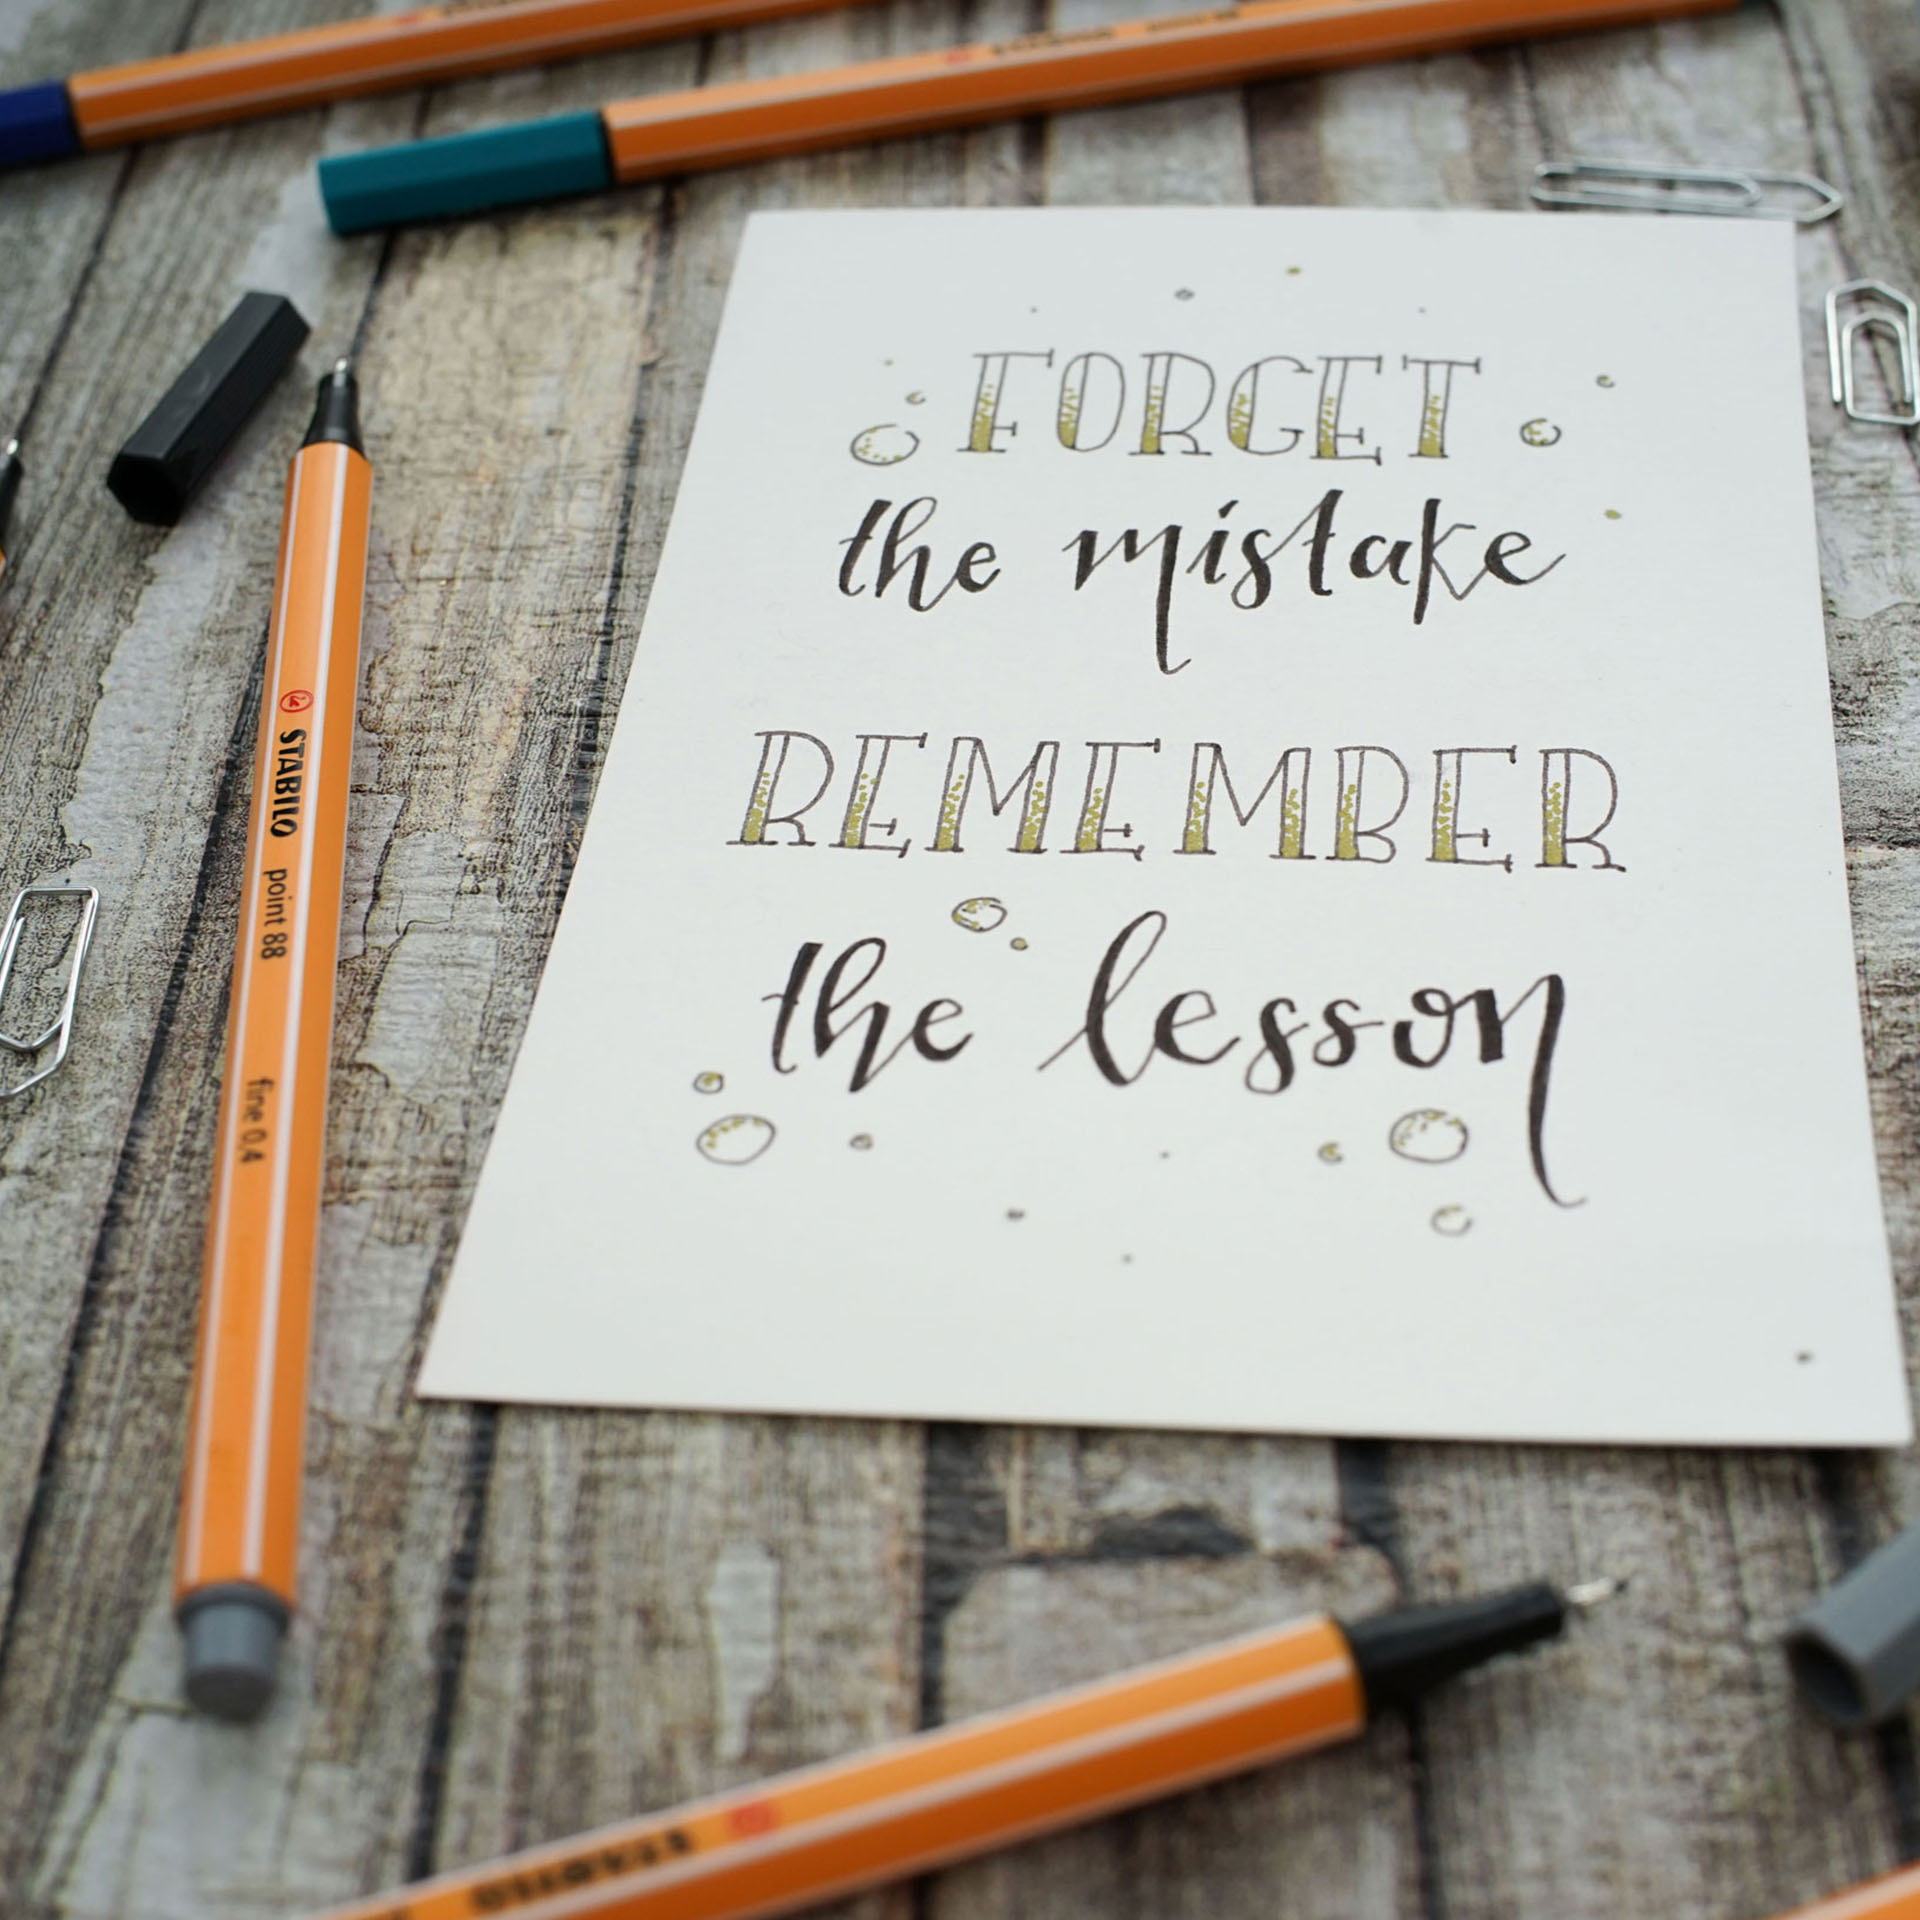 FORGET
the mistake
REMEMBER
the lesson
STABILO point 88 fine 0,4
STABILO